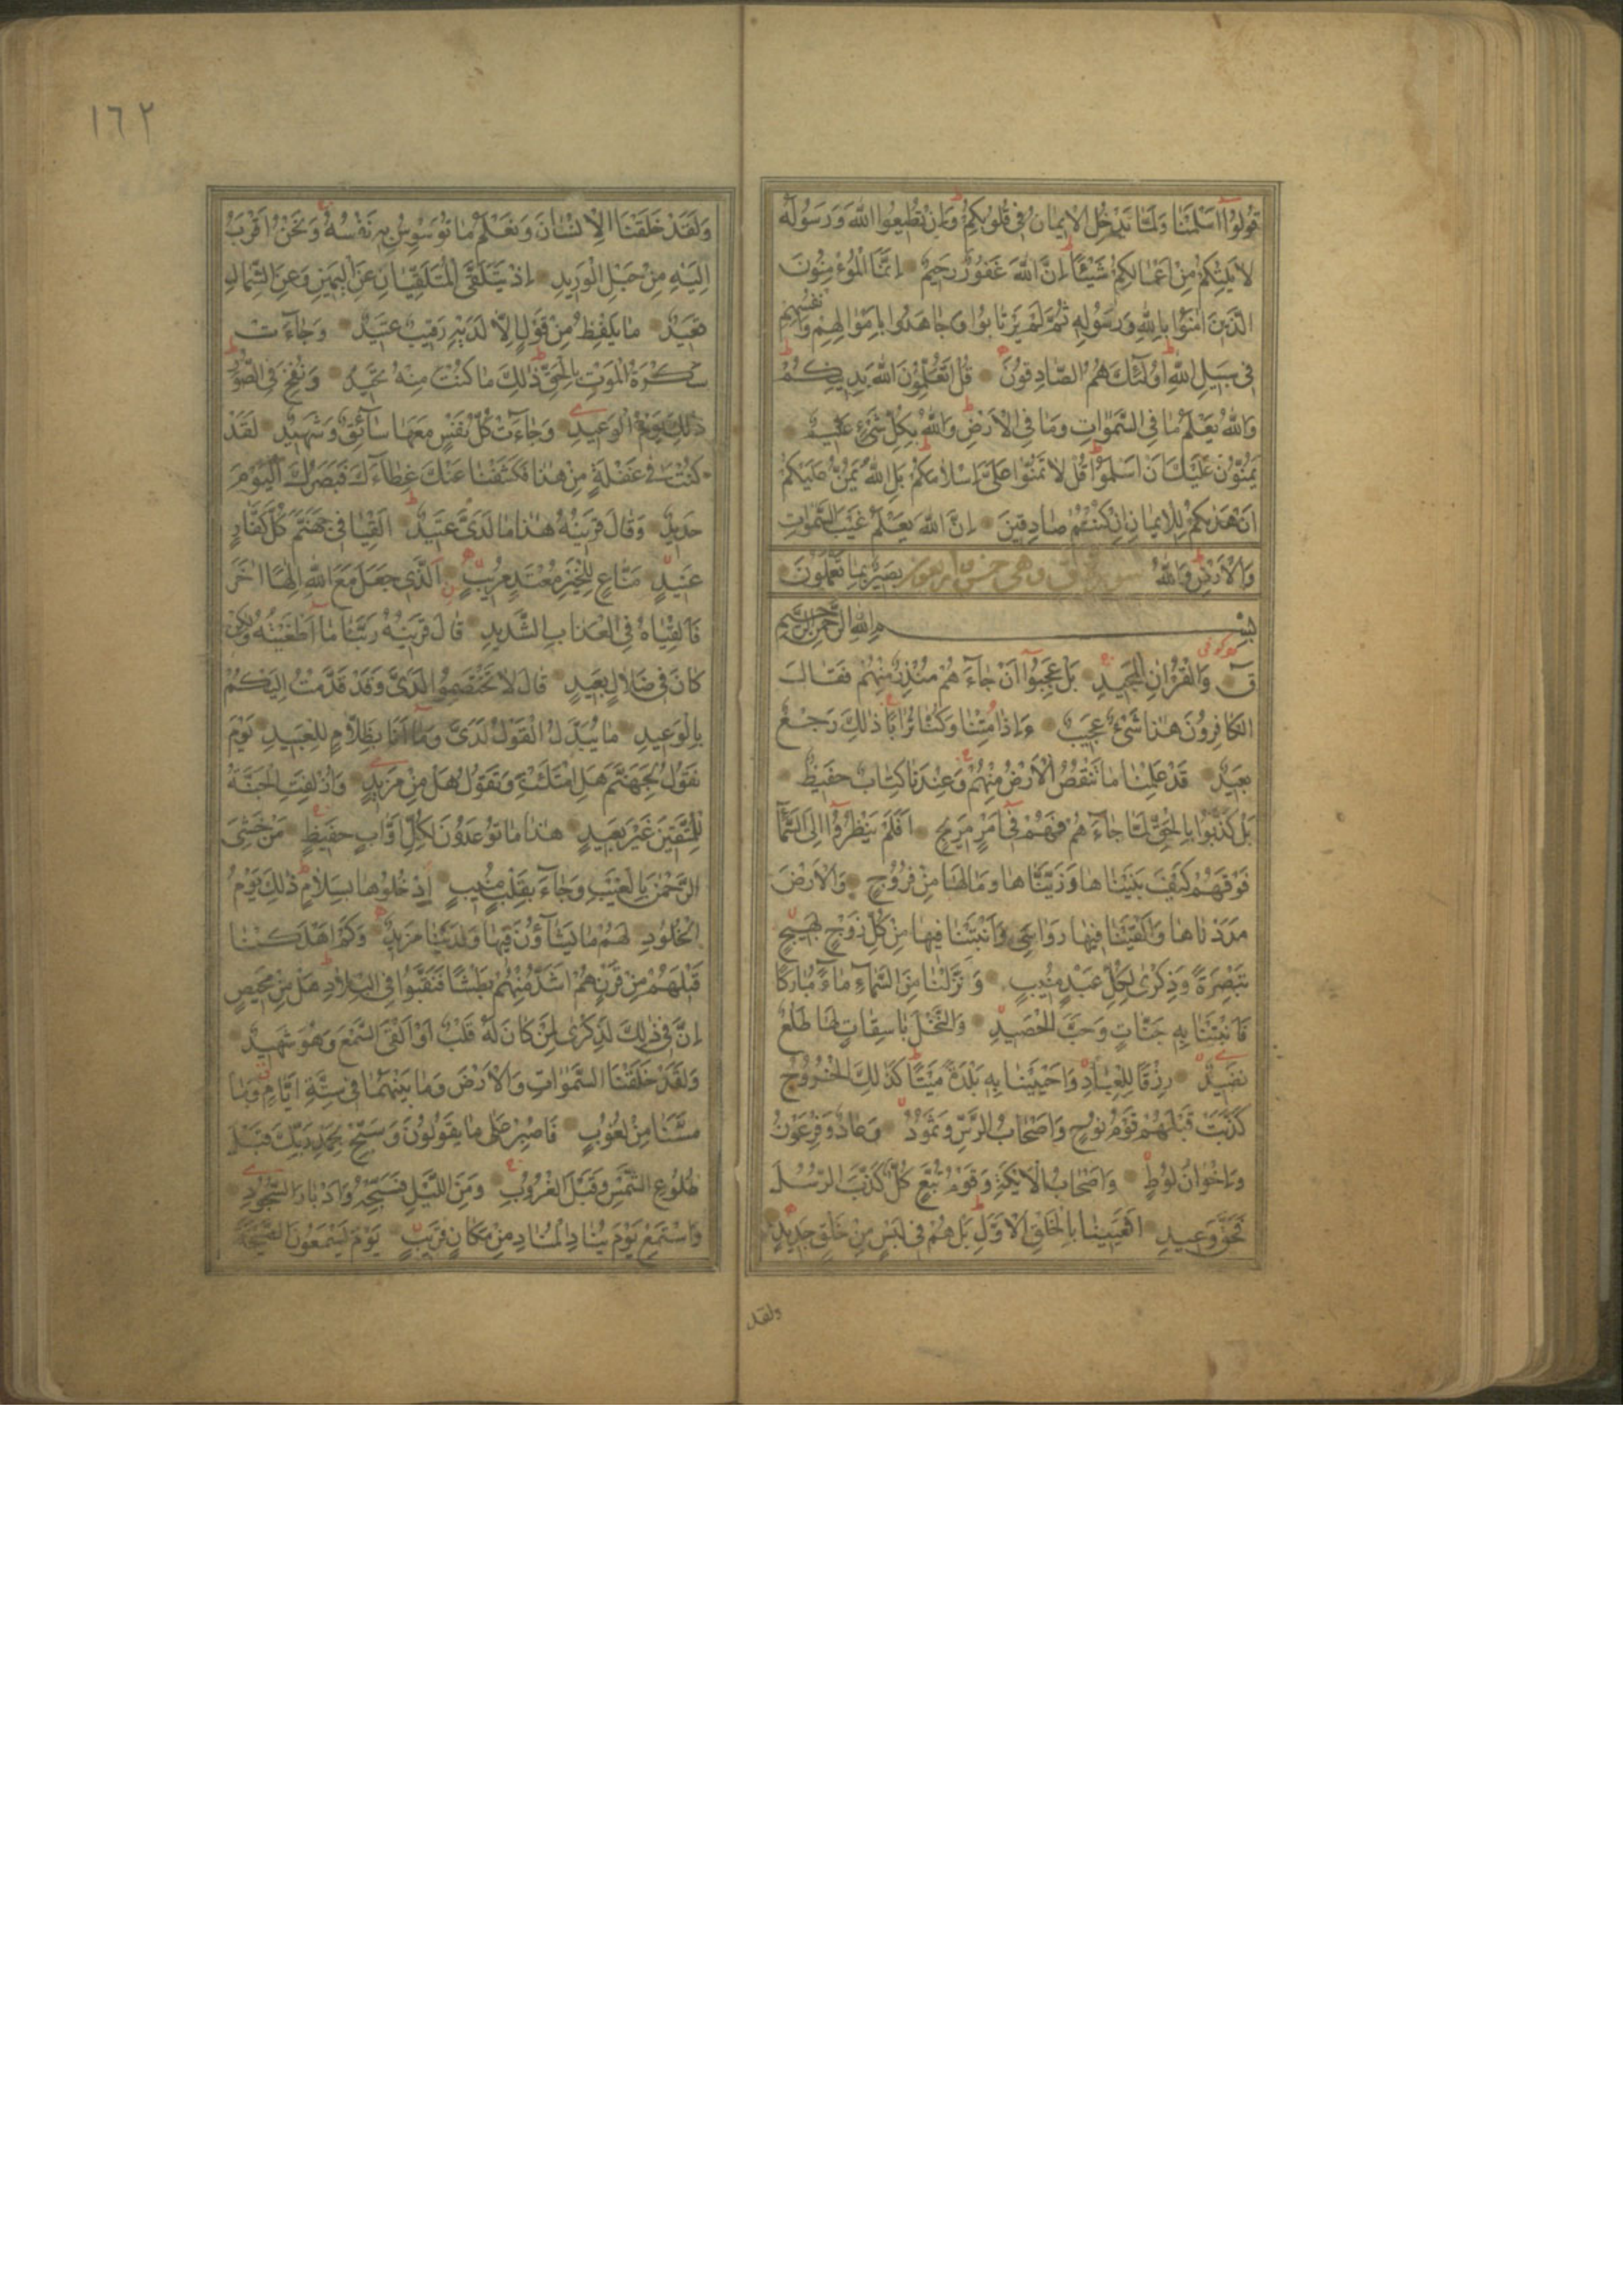 قُولُوا اَسْلَمْنَا وَلَمَّا يَدْخُلِ الْاِيمَانُ فِي قُلُوبِكُمْ وَاِنْ تُطِيعُوا اللّٰهَ وَرَسُولَهُ
لَا يَلِتْكُمْ مِنْ اَعْمَالِكُمْ شَيْئًا اِنَّ اللّٰهَ غَفُورٌ رَحِيمٌ اِنَّمَا الْمُؤْمِنُونَ
الَّذِينَ اٰمَنُوا بِاللّٰهِ وَرَسُولِهِ ثُمَّ لَمْ يَرْتَابُوا وَجَاهَدُوا بِاَمْوَالِهِمْ وَاَنْفُسِهِمْ
فِي سَبِيلِ اللّٰهِ اُولٰئِكَ هُمُ الصَّادِقُونَ قُلْ اَتُعَلِّمُونَ اللّٰهَ بِدِينِكُمْ
وَاللّٰهُ يَعْلَمُ مَا فِي السَّمٰوَاتِ وَمَا فِي الْاَرْضِ وَاللّٰهُ بِكُلِّ شَيْءٍ عَلِيمٌ
يَمُنُّونَ عَلَيْكَ اَنْ اَسْلَمُوا قُلْ لَا تَمُنُّوا عَلَيَّ اِسْلَامَكُمْ بَلِ اللّٰهُ يَمُنُّ عَلَيْكُمْ
اَنْ هَدٰيكُمْ لِلْاِيمَانِ اِنْ كُنْتُمْ صَادِقِينَ اِنَّ اللّٰهَ يَعْلَمُ غَيْبَ السَّمٰوَاتِ
وَالْاَرْضِ وَاللّٰهُ سورة ق وهى خمس واربعون بَصِيرٌ بِمَا تَعْمَلُونَ
بِسْمِ اللّٰهِ الرَّحْمٰنِ الرَّحِيمِ
قٓ وَالْقُرْاٰنِ الْمَجِيدِ بَلْ عَجِبُوا اَنْ جَاءَهُمْ مُنْذِرٌ مِنْهُمْ فَقَالَ
الْكَافِرُونَ هٰذَا شَيْءٌ عَجِيبٌ ءَاِذَا مِتْنَا وَكُنَّا تُرَابًا ذٰلِكَ رَجْعٌ
بَعِيدٌ قَدْ عَلِمْنَا مَا تَنْقُصُ الْاَرْضُ مِنْهُمْ وَعِنْدَنَا كِتَابٌ حَفِيظٌ
بَلْ كَذَّبُوا بِالْحَقِّ لَمَّا جَاءَهُمْ فَهُمْ فِي اَمْرٍ مَرِيجٍ اَفَلَمْ يَنْظُرُوا اِلَى السَّمَاءِ
فَوْقَهُمْ كَيْفَ بَنَيْنَاهَا وَزَيَّنَّاهَا وَمَا لَهَا مِنْ فُرُوجٍ وَالْاَرْضَ
مَدَدْنَاهَا وَاَلْقَيْنَا فِيهَا رَوَاسِيَ وَاَنْبَتْنَا فِيهَا مِنْ كُلِّ زَوْجٍ بَهِيجٍ
تَبْصِرَةً وَذِكْرٰى لِكُلِّ عَبْدٍ مُنِيبٍ وَنَزَّلْنَا مِنَ السَّمَاءِ مَاءً مُبَارَكًا
فَاَنْبَتْنَا بِهِ جَنَّاتٍ وَحَبَّ الْحَصِيدِ وَالنَّخْلَ بَاسِقَاتٍ لَهَا طَلْعٌ
نَضِيدٌ رِزْقًا لِلْعِبَادِ وَاَحْيَيْنَا بِهِ بَلْدَةً مَيْتًا كَذٰلِكَ الْخُرُوجُ
كَذَّبَتْ قَبْلَهُمْ قَوْمُ نُوحٍ وَاَصْحَابُ الرَّسِّ وَثَمُودُ وَعَادٌ وَفِرْعَوْنُ
وَاِخْوَانُ لُوطٍ وَاَصْحَابُ الْاَيْكَةِ وَقَوْمُ تُبَّعٍ كُلٌّ كَذَّبَ الرُّسُلَ
فَحَقَّ وَعِيدِ اَفَعَيِينَا بِالْخَلْقِ الْاَوَّلِ بَلْ هُمْ فِي لَبْسٍ مِنْ خَلْقٍ جَدِيدٍ
ولقد
١٦٢
وَلَقَدْ خَلَقْنَا الْاِنْسَانَ وَنَعْلَمُ مَا تُوَسْوِسُ بِهِ نَفْسُهُ وَنَحْنُ اَقْرَبُ
اِلَيْهِ مِنْ حَبْلِ الْوَرِيدِ اِذْ يَتَلَقَّى الْمُتَلَقِّيَانِ عَنِ الْيَمِينِ وَعَنِ الشِّمَالِ
قَعِيدٌ مَا يَلْفِظُ مِنْ قَوْلٍ اِلَّا لَدَيْهِ رَقِيبٌ عَتِيدٌ وَجَاءَتْ
سَكْرَةُ الْمَوْتِ بِالْحَقِّ ذٰلِكَ مَا كُنْتَ مِنْهُ تَحِيدُ وَنُفِخَ فِي الصُّورِ
ذٰلِكَ يَوْمُ الْوَعِيدِ وَجَاءَتْ كُلُّ نَفْسٍ مَعَهَا سَائِقٌ وَشَهِيدٌ لَقَدْ
كُنْتَ فِي غَفْلَةٍ مِنْ هٰذَا فَكَشَفْنَا عَنْكَ غِطَاءَكَ فَبَصَرُكَ الْيَوْمَ
حَدِيدٌ وَقَالَ قَرِينُهُ هٰذَا مَا لَدَيَّ عَتِيدٌ اَلْقِيَا فِي جَهَنَّمَ كُلَّ كَفَّارٍ
عَنِيدٍ مَنَّاعٍ لِلْخَيْرِ مُعْتَدٍ مُرِيبٍ اَلَّذِي جَعَلَ مَعَ اللّٰهِ اِلٰهًا اٰخَرَ
فَاَلْقِيَاهُ فِي الْعَذَابِ الشَّدِيدِ قَالَ قَرِينُهُ رَبَّنَا مَا اَطْغَيْتُهُ وَلٰكِنْ
كَانَ فِي ضَلَالٍ بَعِيدٍ قَالَ لَا تَخْتَصِمُوا لَدَيَّ وَقَدْ قَدَّمْتُ اِلَيْكُمْ
بِالْوَعِيدِ مَا يُبَدَّلُ الْقَوْلُ لَدَيَّ وَمَا اَنَا بِظَلَّامٍ لِلْعَبِيدِ يَوْمَ
نَقُولُ لِجَهَنَّمَ هَلِ امْتَلَئْتِ وَتَقُولُ هَلْ مِنْ مَزِيدٍ وَاُزْلِفَتِ الْجَنَّةُ
لِلْمُتَّقِينَ غَيْرَ بَعِيدٍ هٰذَا مَا تُوعَدُونَ لِكُلِّ اَوَّابٍ حَفِيظٍ مَنْ خَشِيَ
الرَّحْمٰنَ بِالْغَيْبِ وَجَاءَ بِقَلْبٍ مُنِيبٍ اُدْخُلُوهَا بِسَلَامٍ ذٰلِكَ يَوْمُ
الْخُلُودِ لَهُمْ مَا يَشَاؤُنَ فِيهَا وَلَدَيْنَا مَزِيدٌ وَكَمْ اَهْلَكْنَا
قَبْلَهُمْ مِنْ قَرْنٍ هُمْ اَشَدُّ مِنْهُمْ بَطْشًا فَنَقَّبُوا فِي الْبِلَادِ هَلْ مِنْ مَحِيصٍ
اِنَّ فِي ذٰلِكَ لَذِكْرٰى لِمَنْ كَانَ لَهُ قَلْبٌ اَوْ اَلْقَى السَّمْعَ وَهُوَ شَهِيدٌ
وَلَقَدْ خَلَقْنَا السَّمٰوَاتِ وَالْاَرْضَ وَمَا بَيْنَهُمَا فِي سِتَّةِ اَيَّامٍ وَمَا
مَسَّنَا مِنْ لُغُوبٍ فَاصْبِرْ عَلٰى مَا يَقُولُونَ وَسَبِّحْ بِحَمْدِ رَبِّكَ قَبْلَ
طُلُوعِ الشَّمْسِ وَقَبْلَ الْغُرُوبِ وَمِنَ اللَّيْلِ فَسَبِّحْهُ وَاَدْبَارَ السُّجُودِ
وَاسْتَمِعْ يَوْمَ يُنَادِ الْمُنَادِ مِنْ مَكَانٍ قَرِيبٍ يَوْمَ يَسْمَعُونَ الصَّيْحَةَ